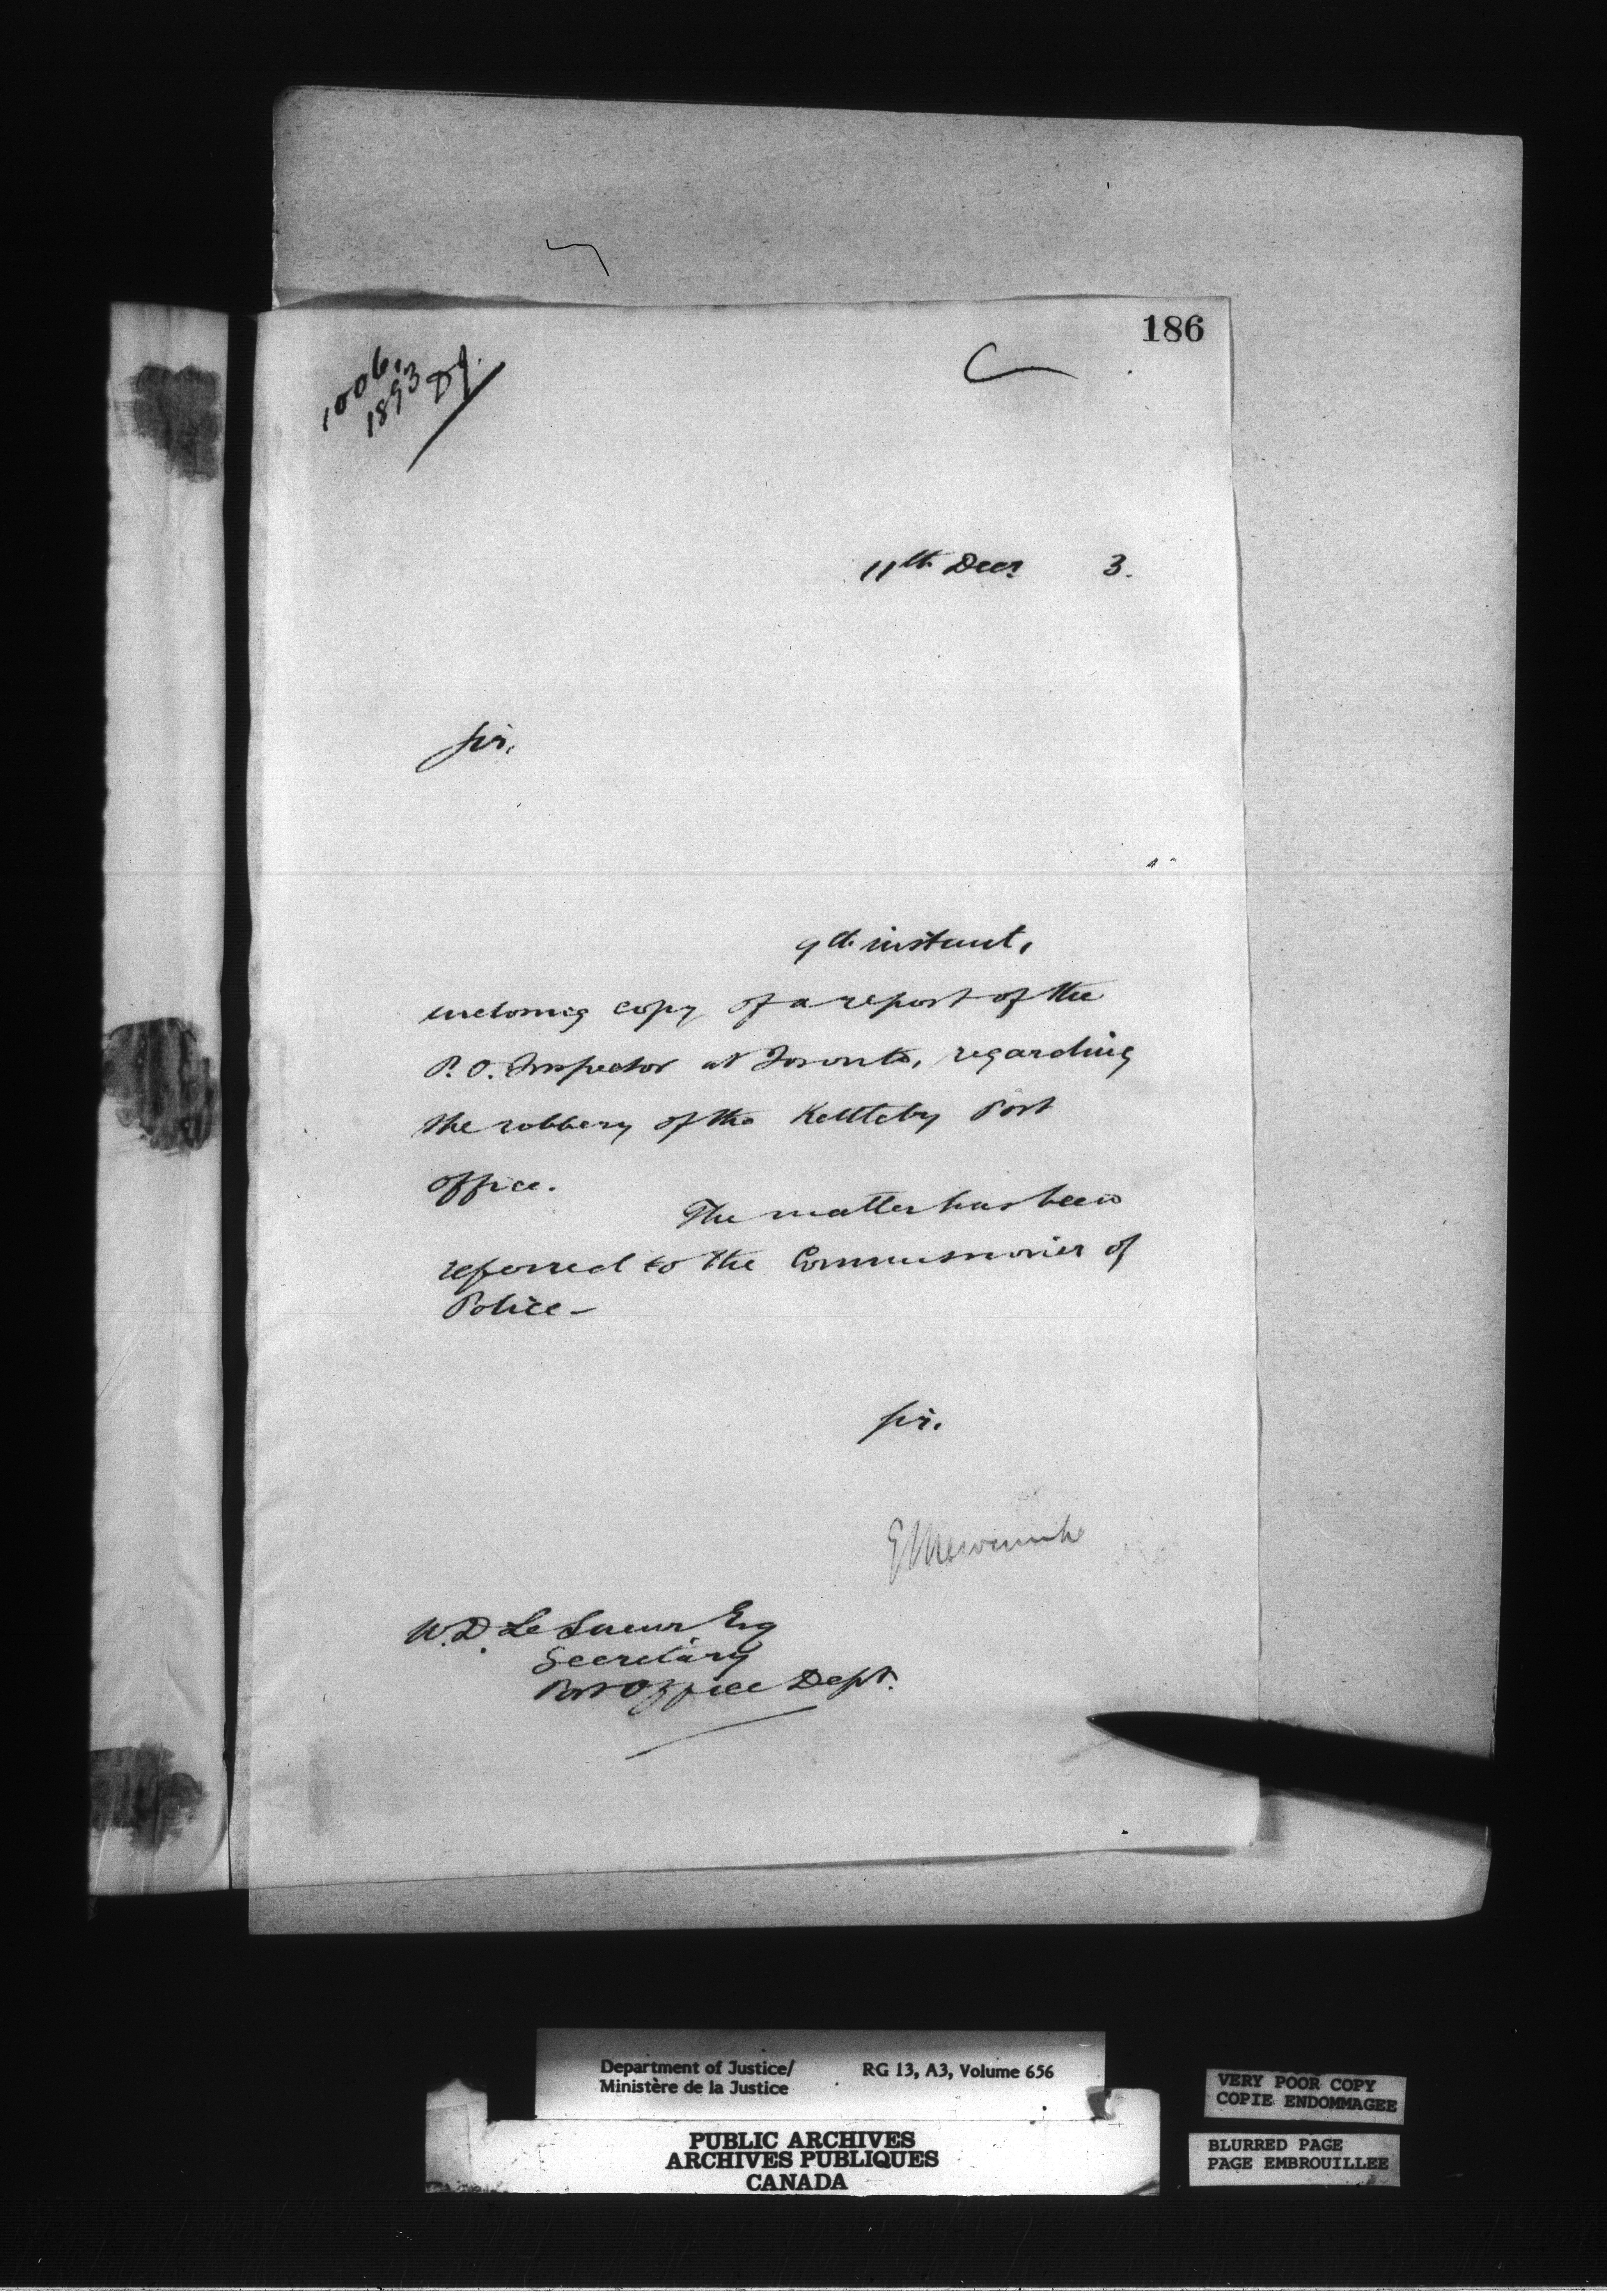 186
1006,
1893
DJ.
11th Decr 3.
Sir,
9th instant,
enclosing copy of a report of the
P.O. Inspector at Toronto, regarding
the robbery of the Kettleby Post
office.
The matter has been
referred to the Commissioner of
Police -
Sir,
E L Newcombe
W.D. Le Sueur Esq
Secretary
Post Office Dept.
Department of Justice/ RG 13, A3, Volume 656
Ministère de la Justice
PUBLIC ARCHIVES
ARCHIVES PUBLIQUES
CANADA
VERY POOR COPY
COPIE ENDOMMAGEE
BLURRED PAGE
PAGE EMBROUILLEE